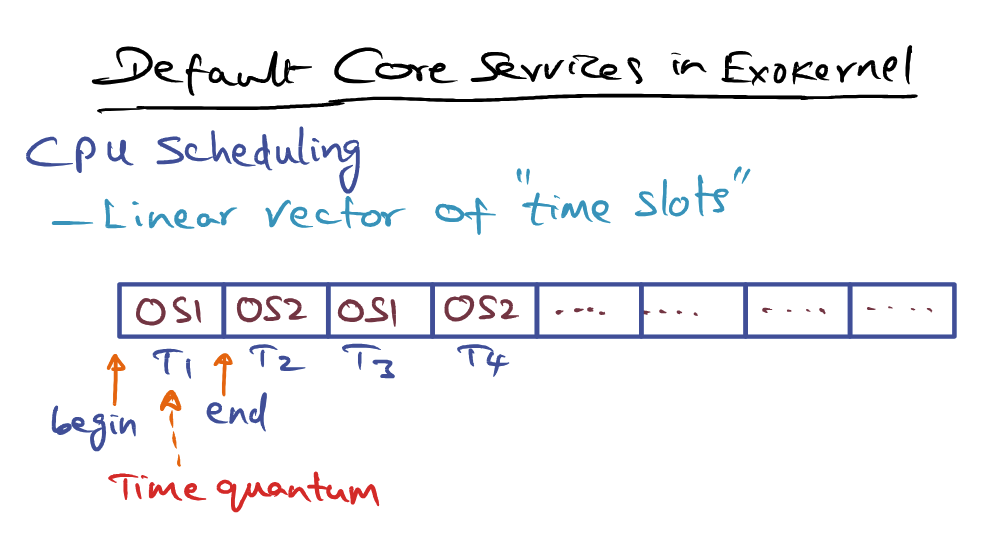 Default Core Services in Exokernel
CPU Scheduling
- Linear vector of "time slots"
OS1 OS2 OS1 OS2 .... .... .... .....
T1 T2 T3 T4
begin end
Time quantum